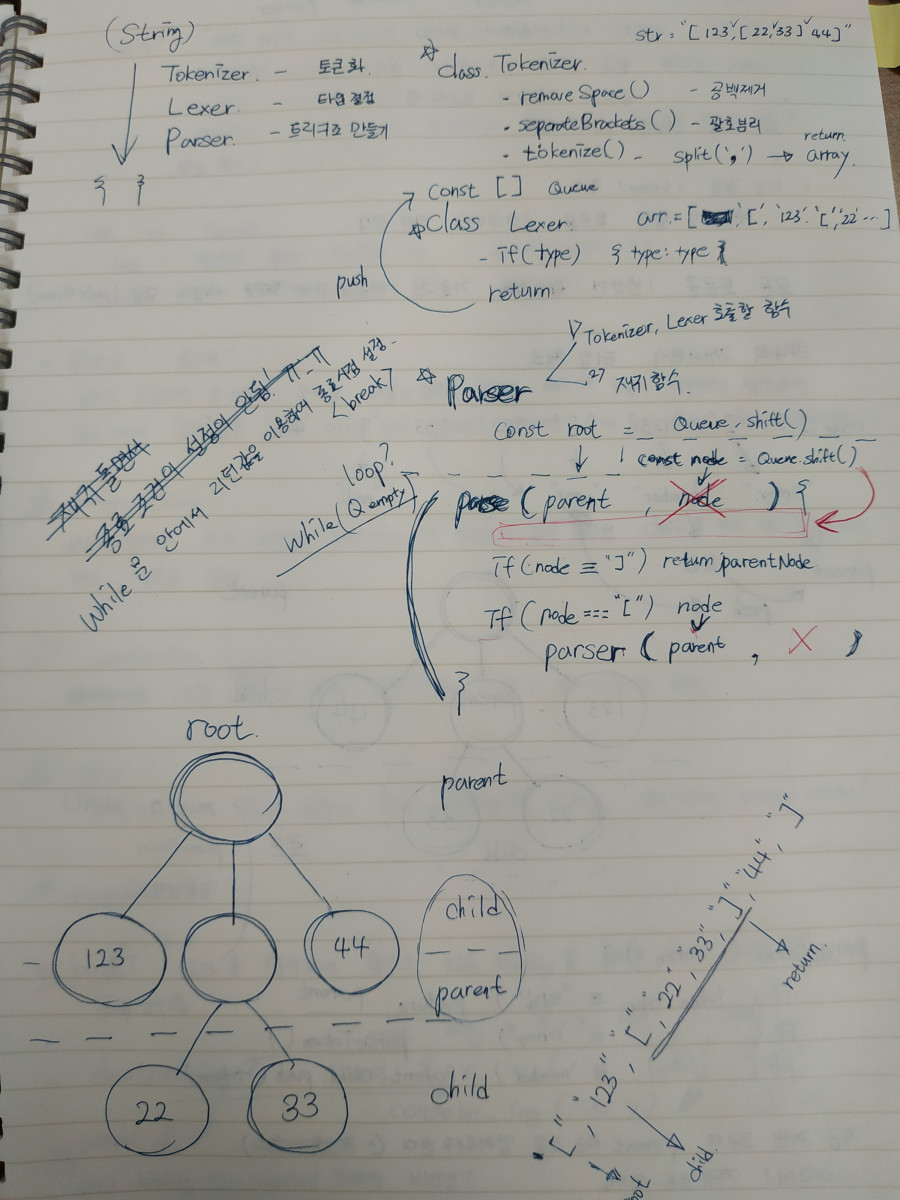 (String)
Tokenizer. - 토큰화
Lexer - 타입 결정
Parser. - 트리구조 만들기
{ }
str = "[123,[22,33]44]"
☆ class. Tokenizer.
· removeSpace() - 공백제거
· seperateBrackets() - 괄호분리
· tokenize() - split(',') → return array.
const [] Queue
☆ Class Lexer. arr = [ '[', '123', '[', '22' ... ]
- If(type) { type: type }
return
push
☆ Parser
1) Tokenizer, Lexer 호출할 함수
2) 재귀함수.
const root = Queue.shift()
const node = Queue.shift()
parse (parent, node) {
If(node = "]") return parentNode
If(node === "[") node
parser (parent, X)
}
loop?
while(Q empty)
재귀 돌면서
종료 조건의 설정이 안됨! ㅠ_ㅠ
While 문 안에서 리턴값을 이용하여 종료시점 설정-
<break>
root.
parent
123
44
child
parent
22
33
child
"[", 123", "[", 22", 33", "]", 44", "]"
return.
child